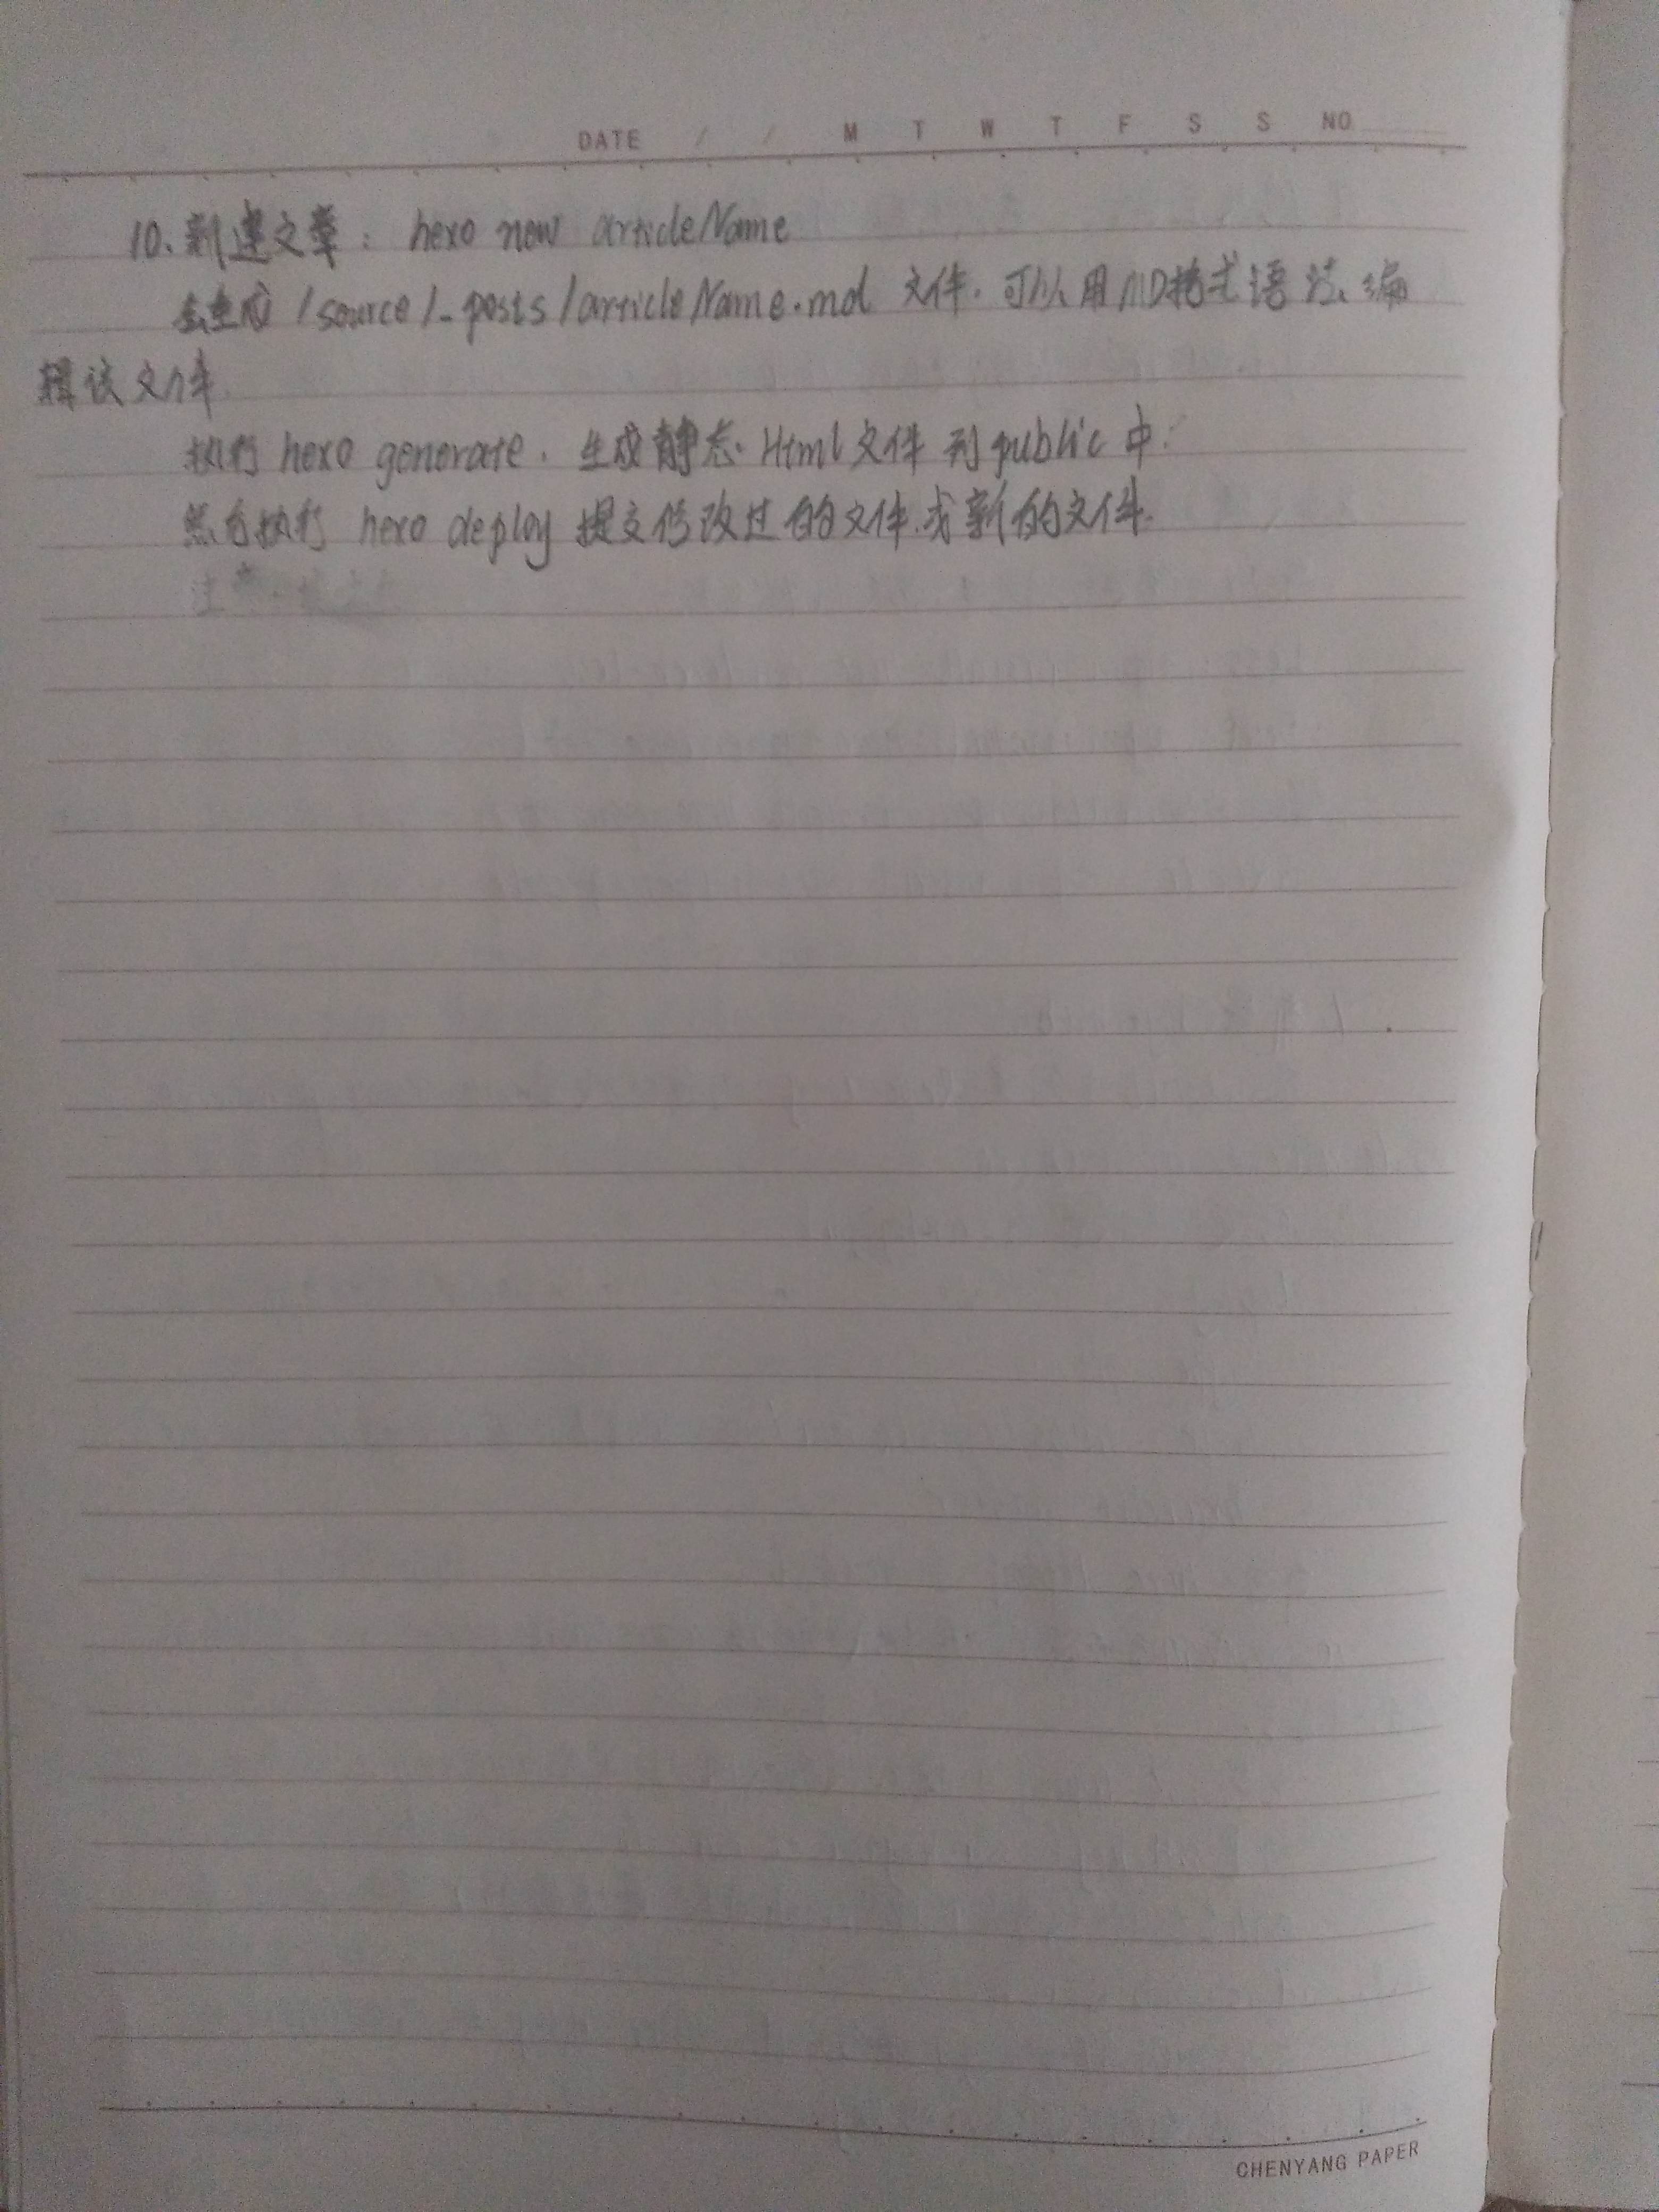 DATE / / M T W T F S S NO
10. 新建文章: hexo new articleName
会生成 /source/_posts/articleName.md 文件. 可以用MD格式语法编
辑该文件
执行 hexo generate. 生成静态Html文件到public中.
然后执行 hexo deploy 提交修改过的文件或新的文件.
CHENYANG PAPER